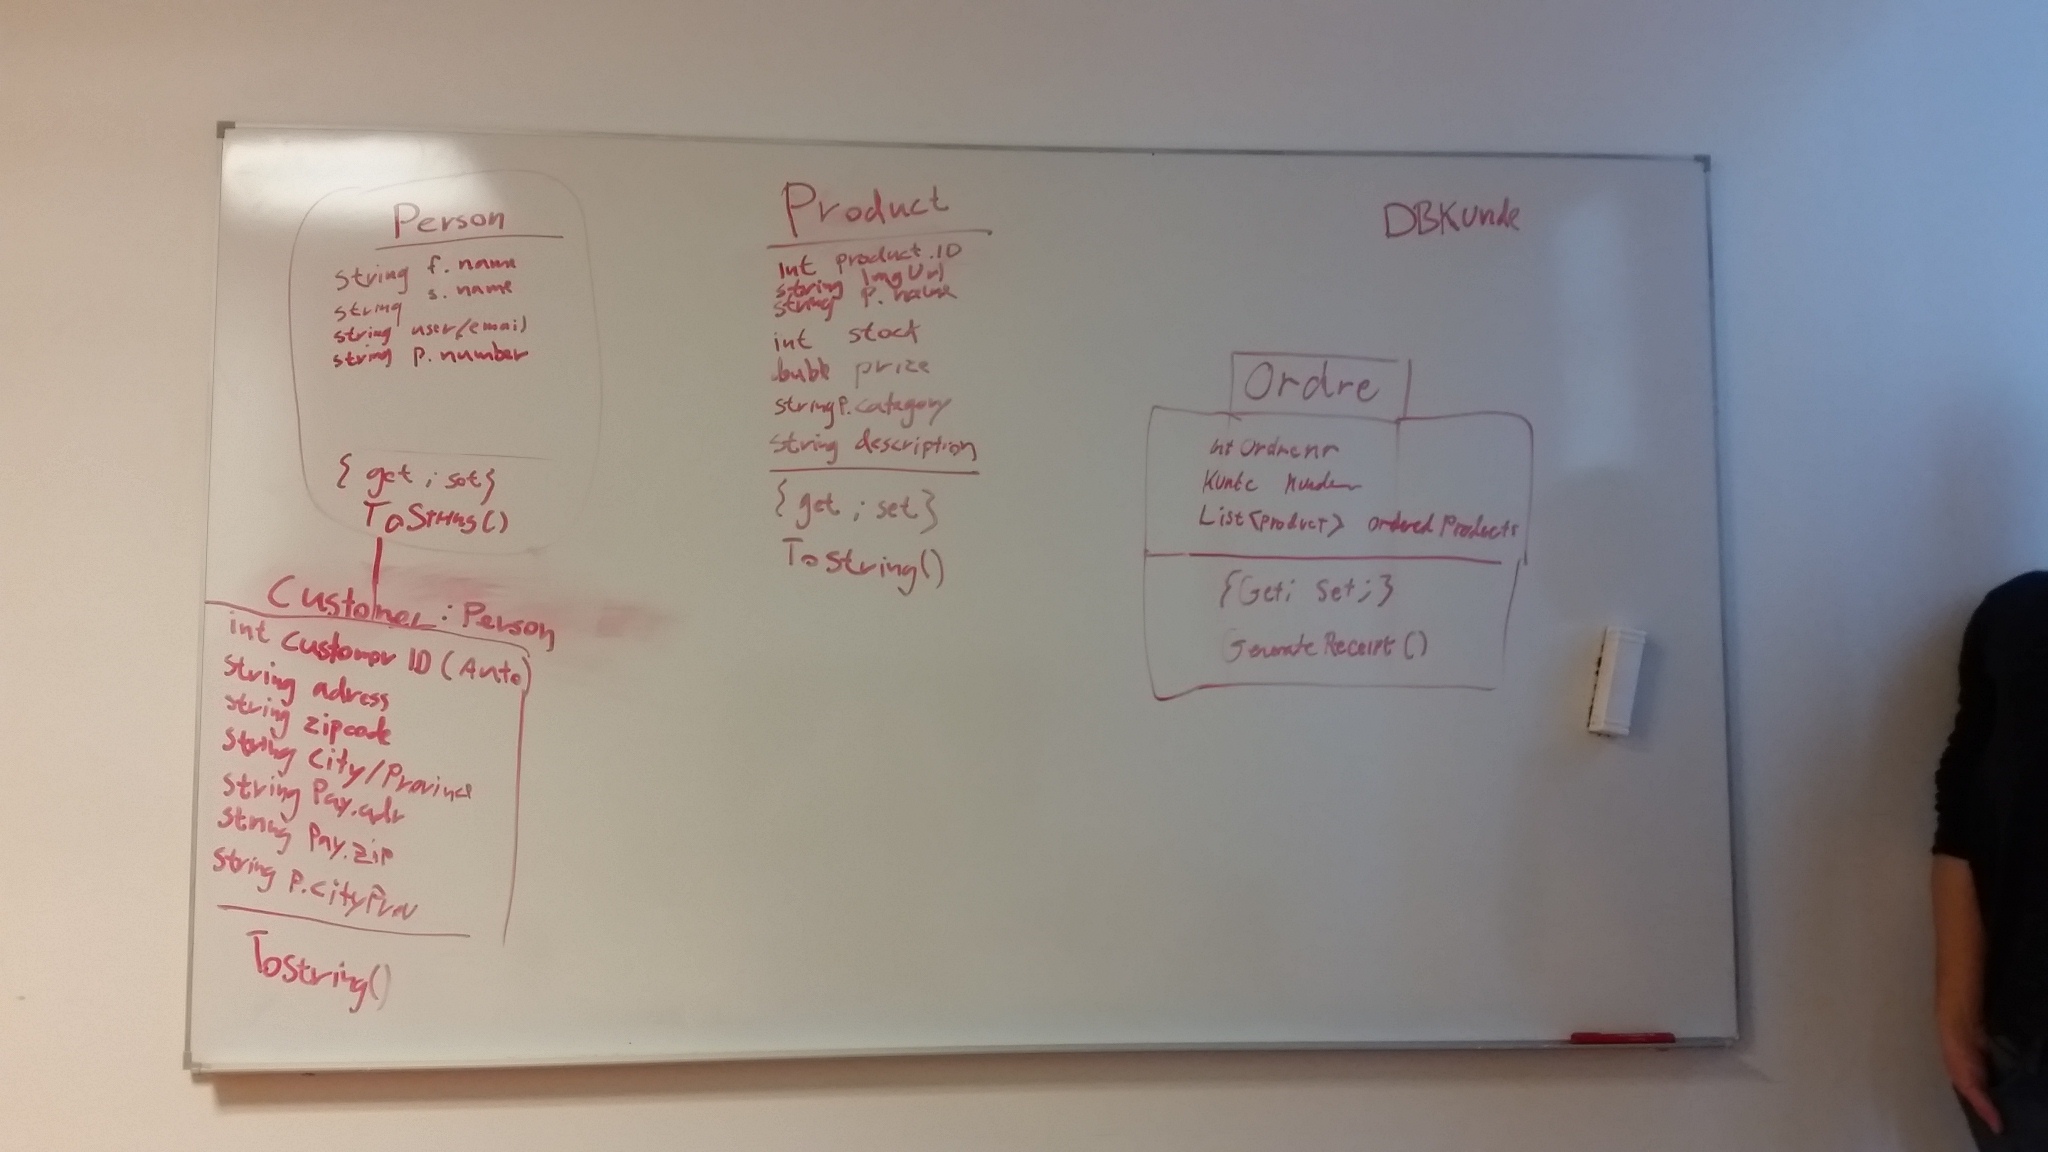 Person
string f.name
string s.name
string user/email
string p.number
{ get ; set}
ToString()
Customer : Person
int Customer ID (Auto)
string adress
string zipcode
string City/Province
string Pay.adr
string Pay.zip
string P.CityProv
ToString()
Product
int product.ID
string ImgUrl
string P.name
int stock
prize
string P.catagory
string description
{ get ; set }
ToString()
DBKunde
Ordre
int Ordrenr
List<product> ordered Products
{Get; Set;}
GenerateReceipt()